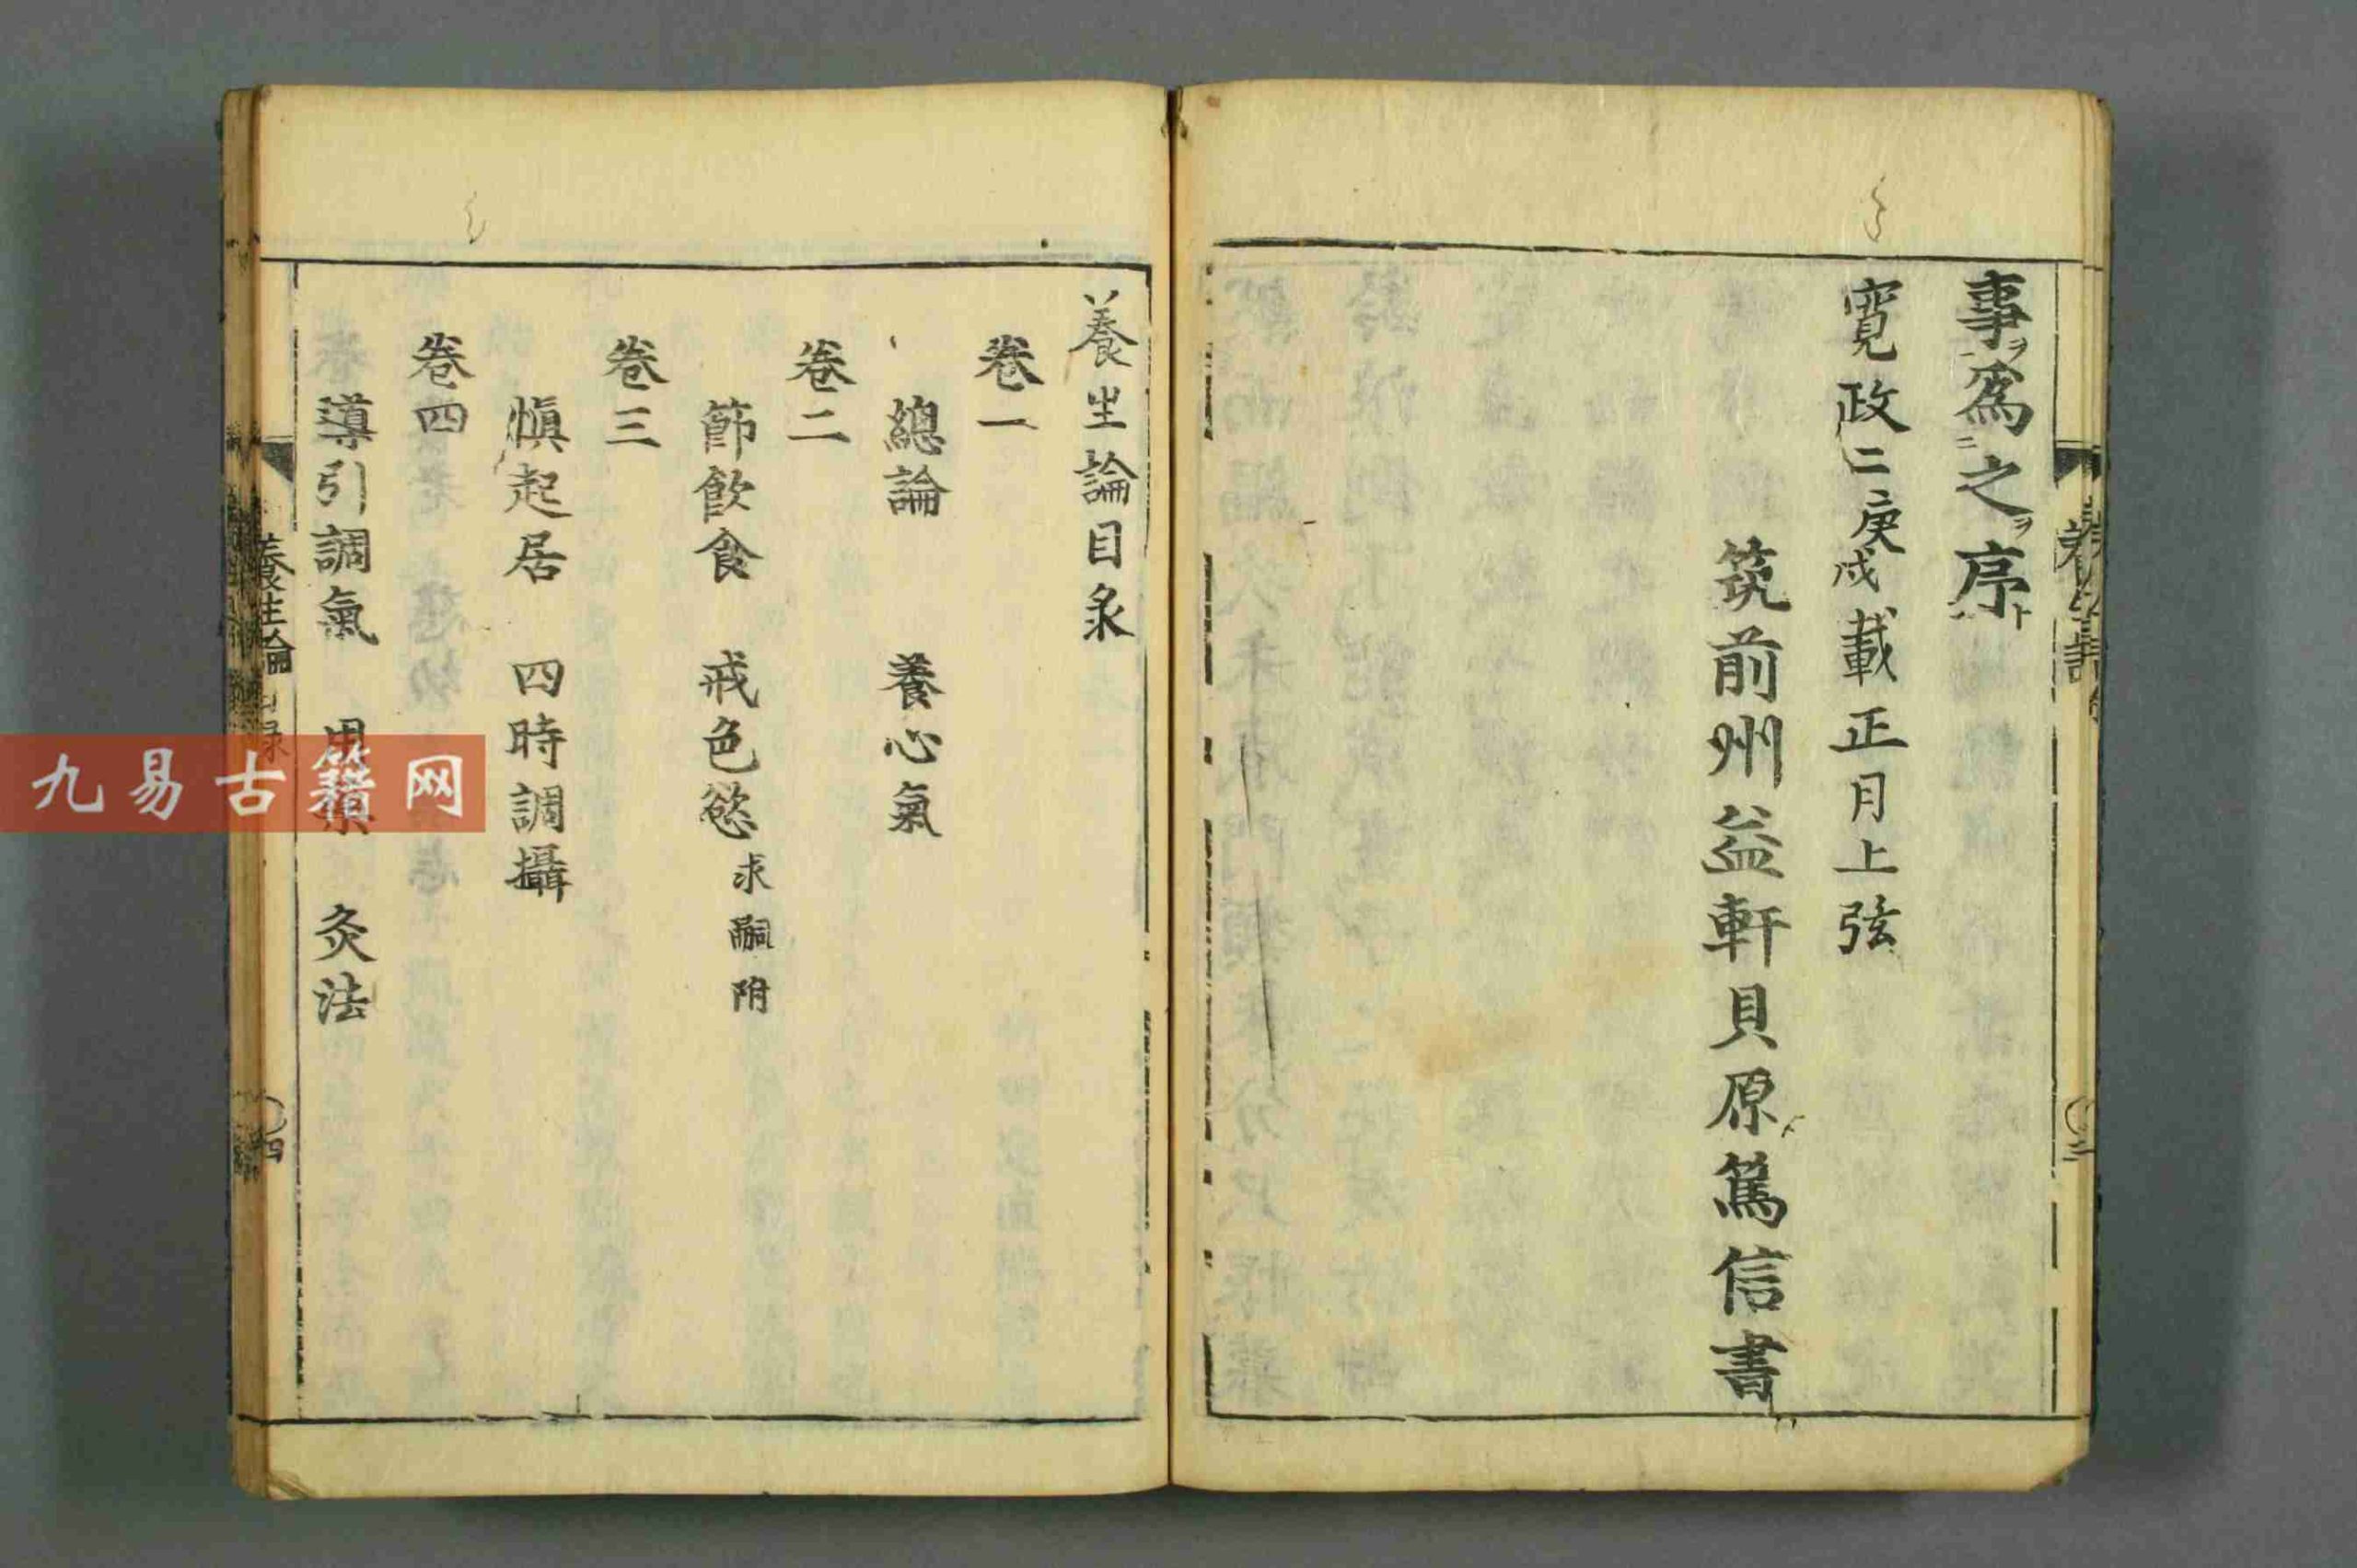 事ヲ爲ニ之ヲ序ト
寛政二庚戌載正月上弦
筑前州益軒貝原篤信書
養生論目彔
卷一
總論　養心氣
卷二
節飲食　戒色慾 求嗣附
卷三
愼起居　四時調攝
卷四
導引調氣　用藥　灸法
養生論
四
九易古籍网